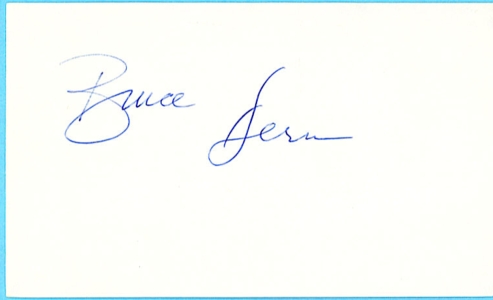 Bruce Dern